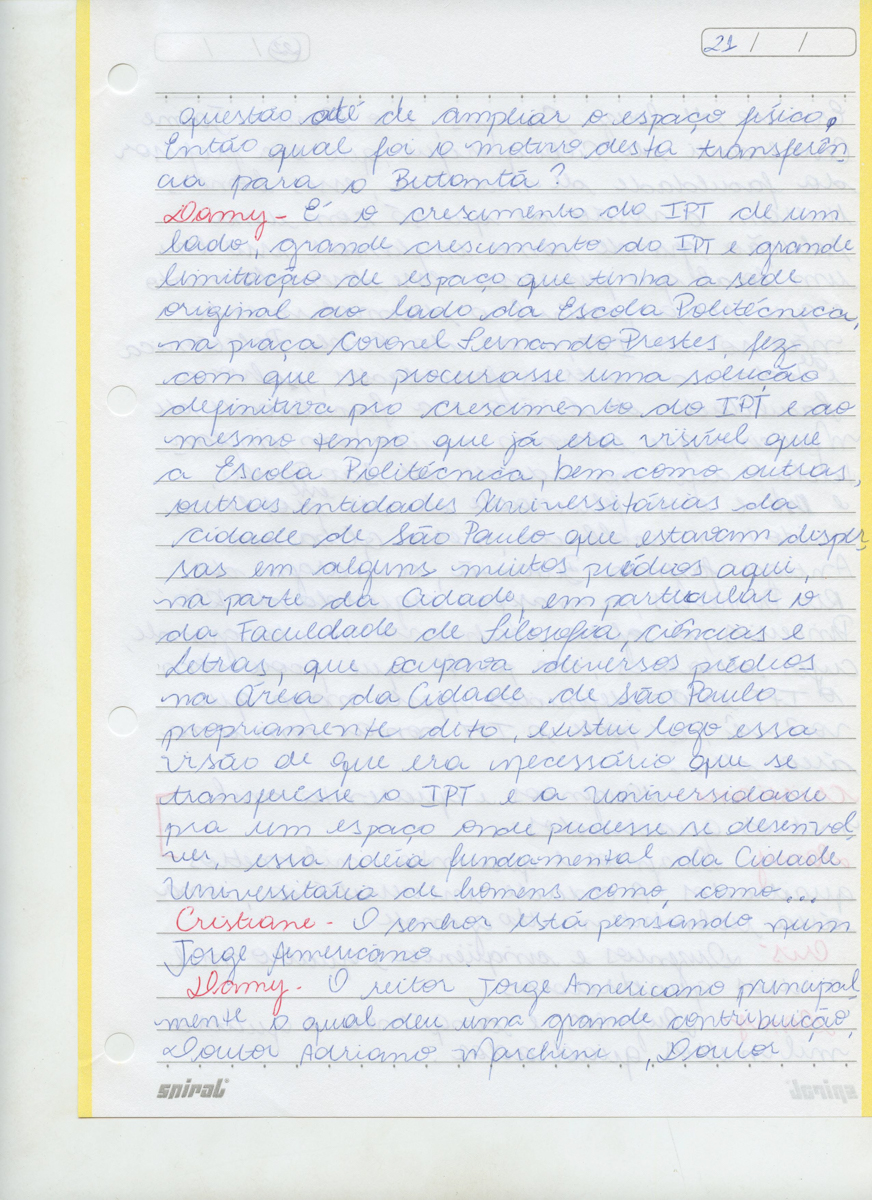 21 / /
questão até de ampliar o espaço físico,
Então qual foi o motivo desta transferên
cia para o Buttantã?
Damy - É o crescimento do IPT de um
lado, grande crescimento do IPT e grande
limitação de espaço que tinha a sede
original ao lado da Escola Politécnica,
na praça Coronel Fernando Prestes, fez
com que se procurasse uma solução
definitiva pro crescimento do IPT e ao
mesmo tempo que já era visível que
a Escola Politécnica, bem como outras,
outras entidades Universitárias da
cidade de São Paulo que estavam disper-
sas em alguns muitos prédios aqui,
na parte da Cidade, em particular o
da Faculdade de Filosofia, Ciências e
Letras, que ocupava diversos prédios
na área da Cidade de São Paulo
propriamente dito, existiu logo essa
visão de que era necessário que se
transferisse o IPT e a Universidade
pra um espaço onde pudesse se desenvol-
ver, essa idéia fundamental da Cidade
Universitária de homens como, como...
Cristiane - O senhor está pensando num
Jorge Americano
Damy - O reitor Jorge Americano principal-
mente o qual deu uma grande contribuição,
Doutor Adriano Marchini, Doutor
spiral